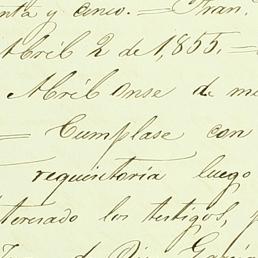 nta y cinco. = Fran.
Abril 2 de 1,855. =
Abril onse de m
= Cumplase con
requisitoria luego
teresado los testigos,